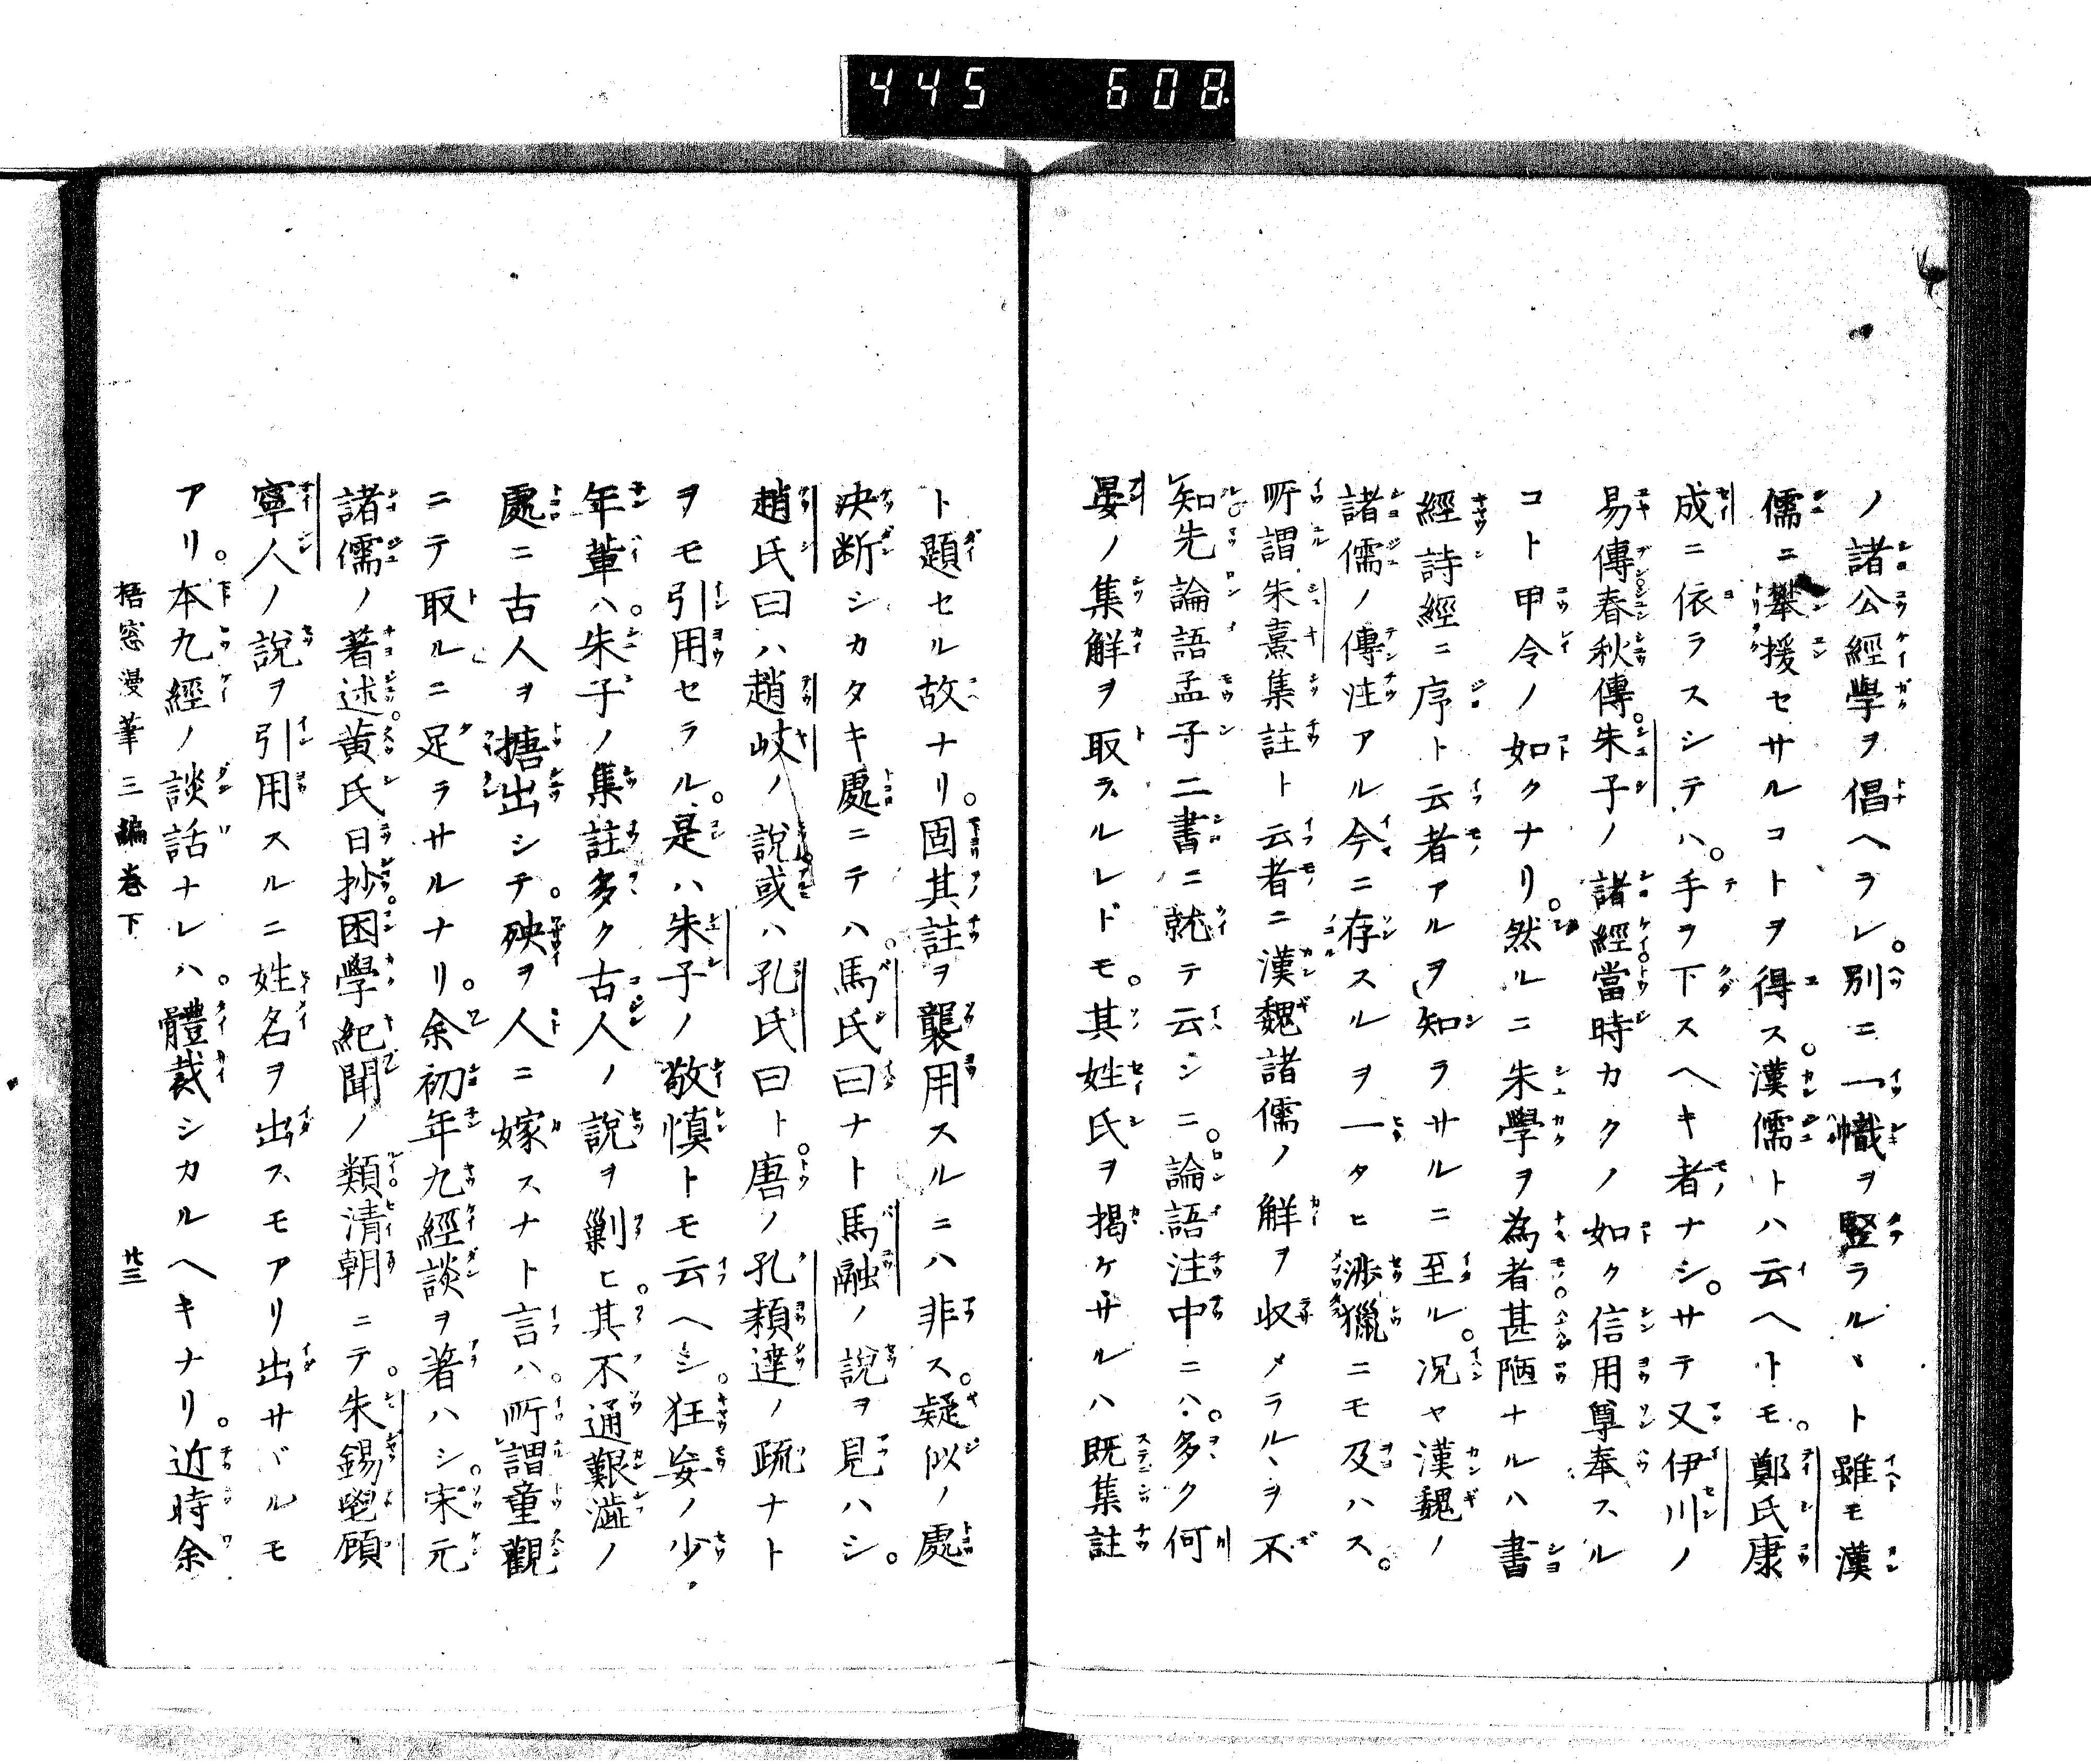 445 608
ノ諸公經學ヲ倡ヘラレ。別ニ一幟ヲ竪ラルヽト雖モ漢
儒ニ攀援セサルコトヲ得ス。漢儒トハ云ヘトモ。鄭氏康
成ニ依ラスシテハ。手ヲ下スヘキ者ナシ。サテ又伊川ノ
易傳春秋傳。朱子ノ諸經當時カクノ如ク信用尊奉スル
コト甲令ノ如クナリ。然ルニ朱學ヲ為者甚陋ナルハ書
經詩經ニ序ト云者アルヲ知ラサルニ至ル。況ヤ漢魏ノ
諸儒ノ傳注アル今ニ存スルヲ一タヒ渉獵ニモ及ハス。
所謂朱熹集註ト云者ニ漢魏諸儒ノ解ヲ収メラルヽヲ不
知先論語孟子二書ニ就テ云シニ。論語注中ニハ。多ク何
晏ノ集解ヲ取ラルレドモ。其姓氏ヲ掲ケサルハ既集註
ト題セル故ナリ。固其註ヲ襲用スルニハ非ス。疑似ノ處
決断シカタキ處ニテハ。馬氏曰ナト馬融ノ說ヲ見ハシ。
趙氏曰ハ趙岐ノ說或ハ孔氏曰ト。唐ノ孔穎達ノ疏ナト
ヲモ引用セラル。是ハ朱子ノ敬慎トモ云ヘシ。狂妄ノ少
年輩ハ。朱子ノ集註多ク古人ノ說ヲ剿ヒ。其不通艱澁ノ
處ニ古人ヲ搪出シテ。殃ヲ人ニ嫁スナト言ハ。所謂童觀
ニテ取ルニ足ラサルナリ。余初年九經談ヲ著ハシ。宋元
諸儒ノ著述。黃氏日抄。困學紀聞ノ類。清朝ニテ。朱錫鬯顧
寧人ノ說ヲ引用スルニ姓名ヲ出スモアリ出サヾルモ
アリ。本九經ノ談話ナレハ。體裁シカルヘキナリ。近時余
梧窓漫筆三編卷下 廿三